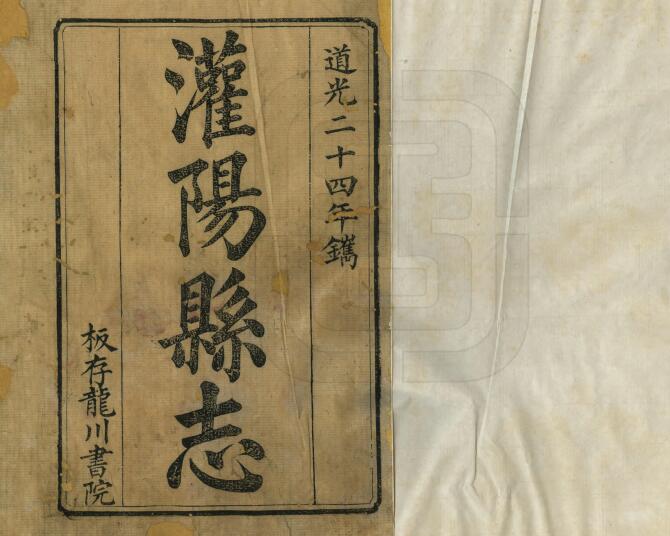 道光二十四年鐫
灌陽縣志
板存龍川書院